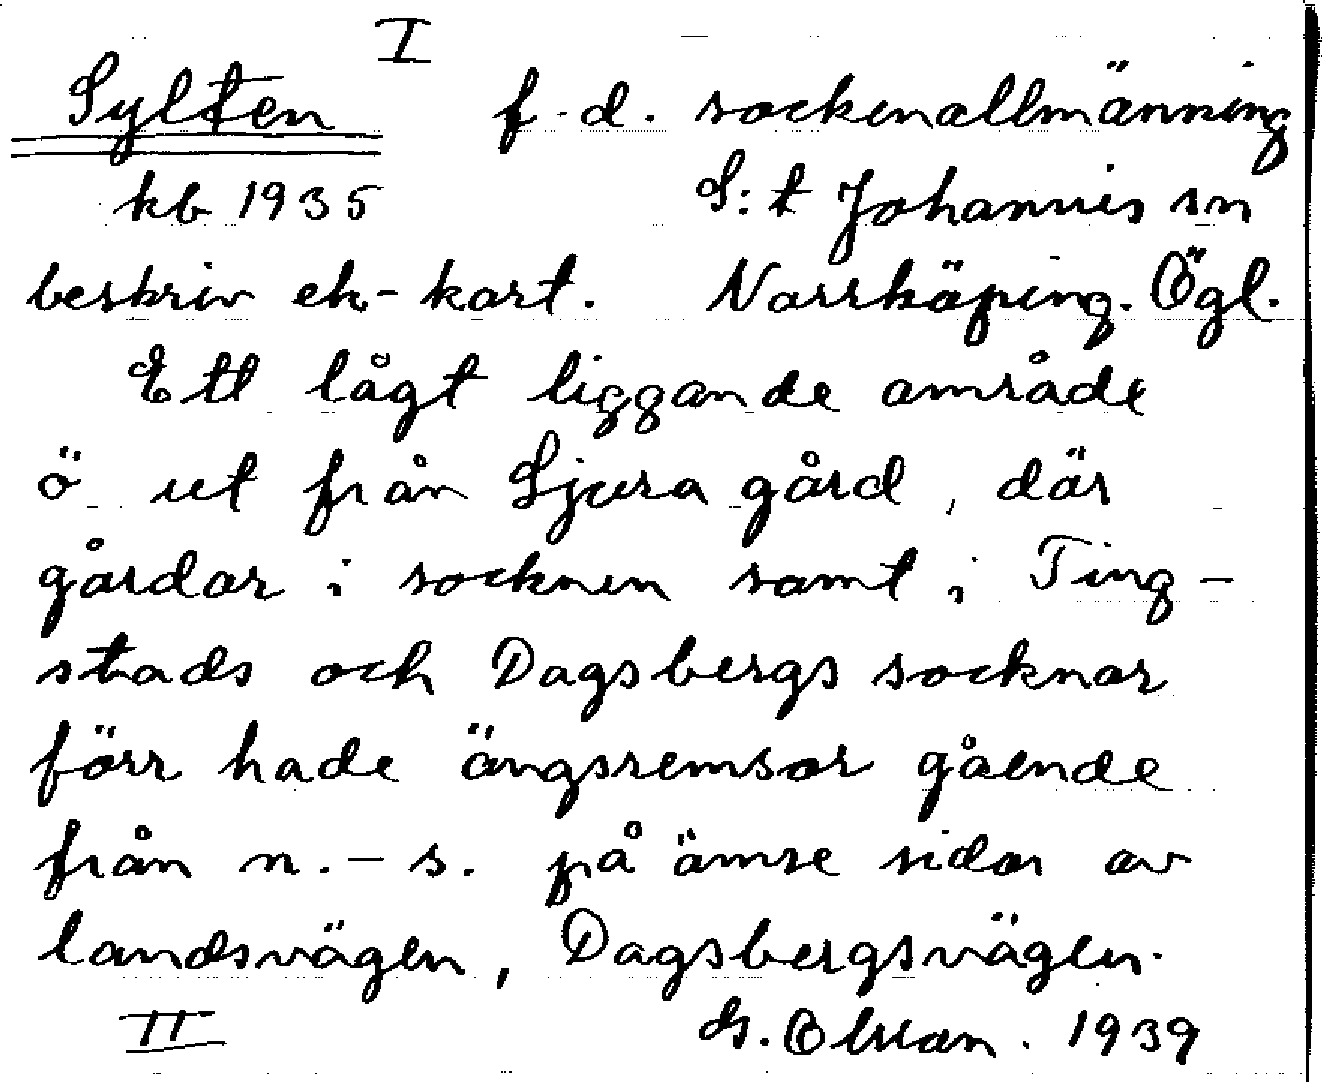 I
Sylten f. d. sockenallmänning
kb 1935 S:t Johannis sn
beskriv ek-kart. Norrköping. Ögl.
Ett lågt liggande område
ö. ut från Ljura gård, där
gårdar i socknen samt i Ting-
stads och Dagsbergs socknar
förr hade ängsremsor gående
från n. - s. på ömse sidor av
landsvägen, Dagsbergsvägen.
II G. Olsson. 1939